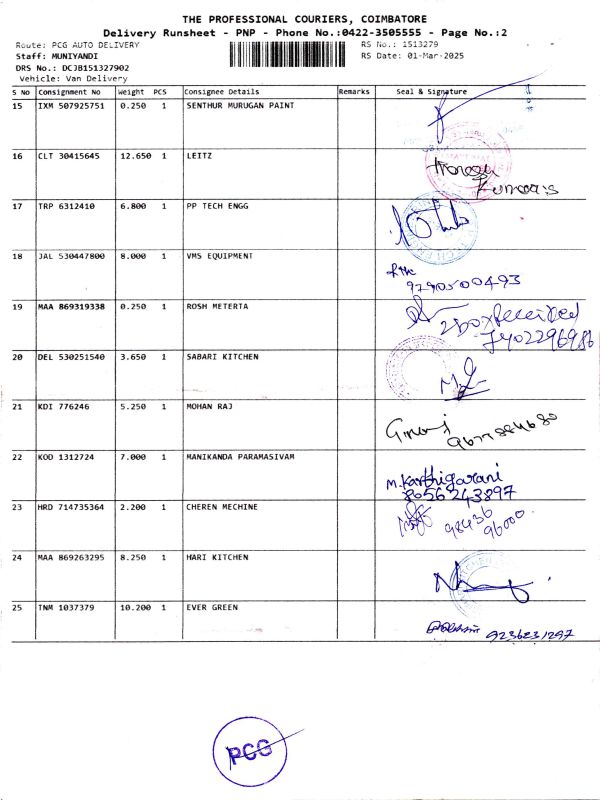 THE PROFESSIONAL COURIERS, COIMBATORE
Delivery Runsheet - PNP - Phone No.:0422-3505555 - Page No.:2
Route: PCG AUTO DELIVERY
RS No.: 1513279
Staff: MUNIYANDI
RS Date: 01-Mar-2025
DRS No.: DCJB151327902
Vehicle: Van Delivery
S No Consignment No Weight PCS Consignee Details Remarks Seal & Signature
15 IXM 507925751 0.250 1 SENTHUR MURUGAN PAINT
16 CLT 30415645 12.650 1 LEITZ
17 TRP 6312410 6.800 1 PP TECH ENGG
18 JAL 530447800 8.000 1 VMS EQUIPMENT
9790500493
19 MAA 869319338 0.250 1 ROSH METERTA
2 Box Received
7402296986
20 DEL 530251540 3.650 1 SABARI KITCHEN
21 KDI 776246 5.250 1 MOHAN RAJ
22 KOD 1312724 7.000 1 MANIKANDA PARAMASIVAM
M.Karthigarani
8056243897
23 HRD 714735364 2.200 1 CHEREN MECHINE
98436
96000
24 MAA 869263295 8.250 1 HARI KITCHEN
25 TNM 1037379 10.200 1 EVER GREEN
9236231297
PCG